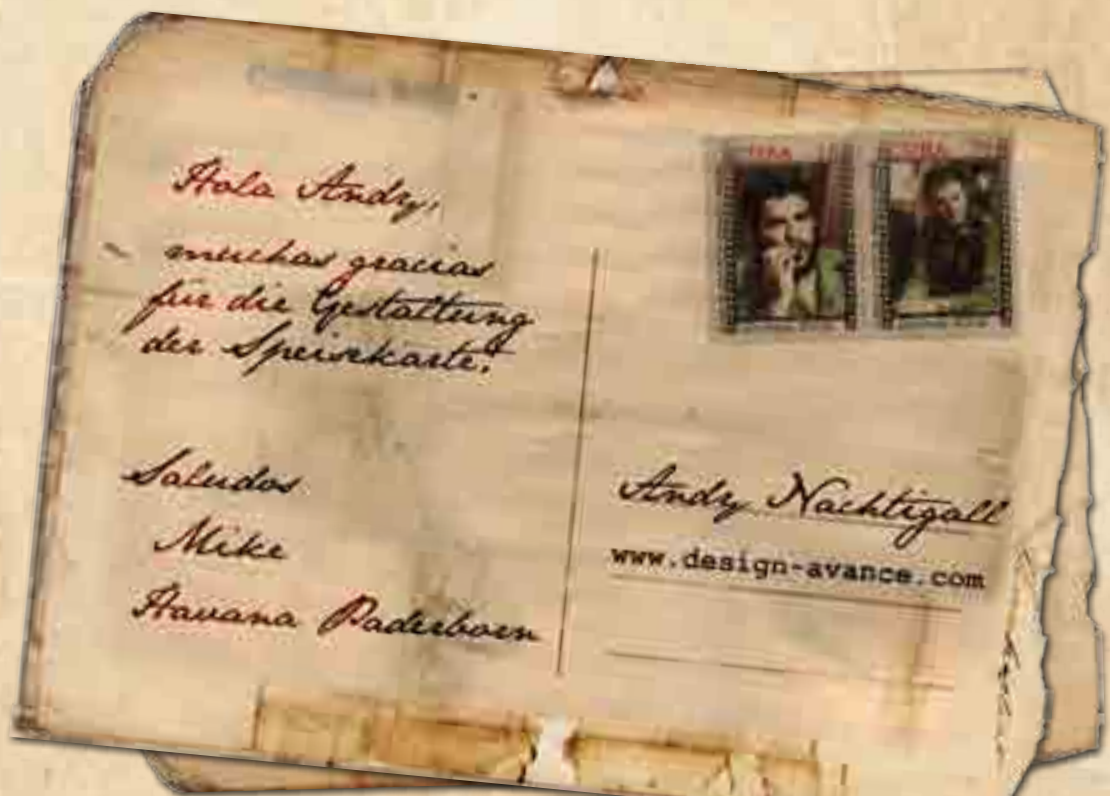 Hola Andy,
muchas gracias
für die Gestaltung
der Speisekarte!
Saludos
Mike
Havana Paderborn
CUBA
Andy Nachtigall
www.design-avance.com